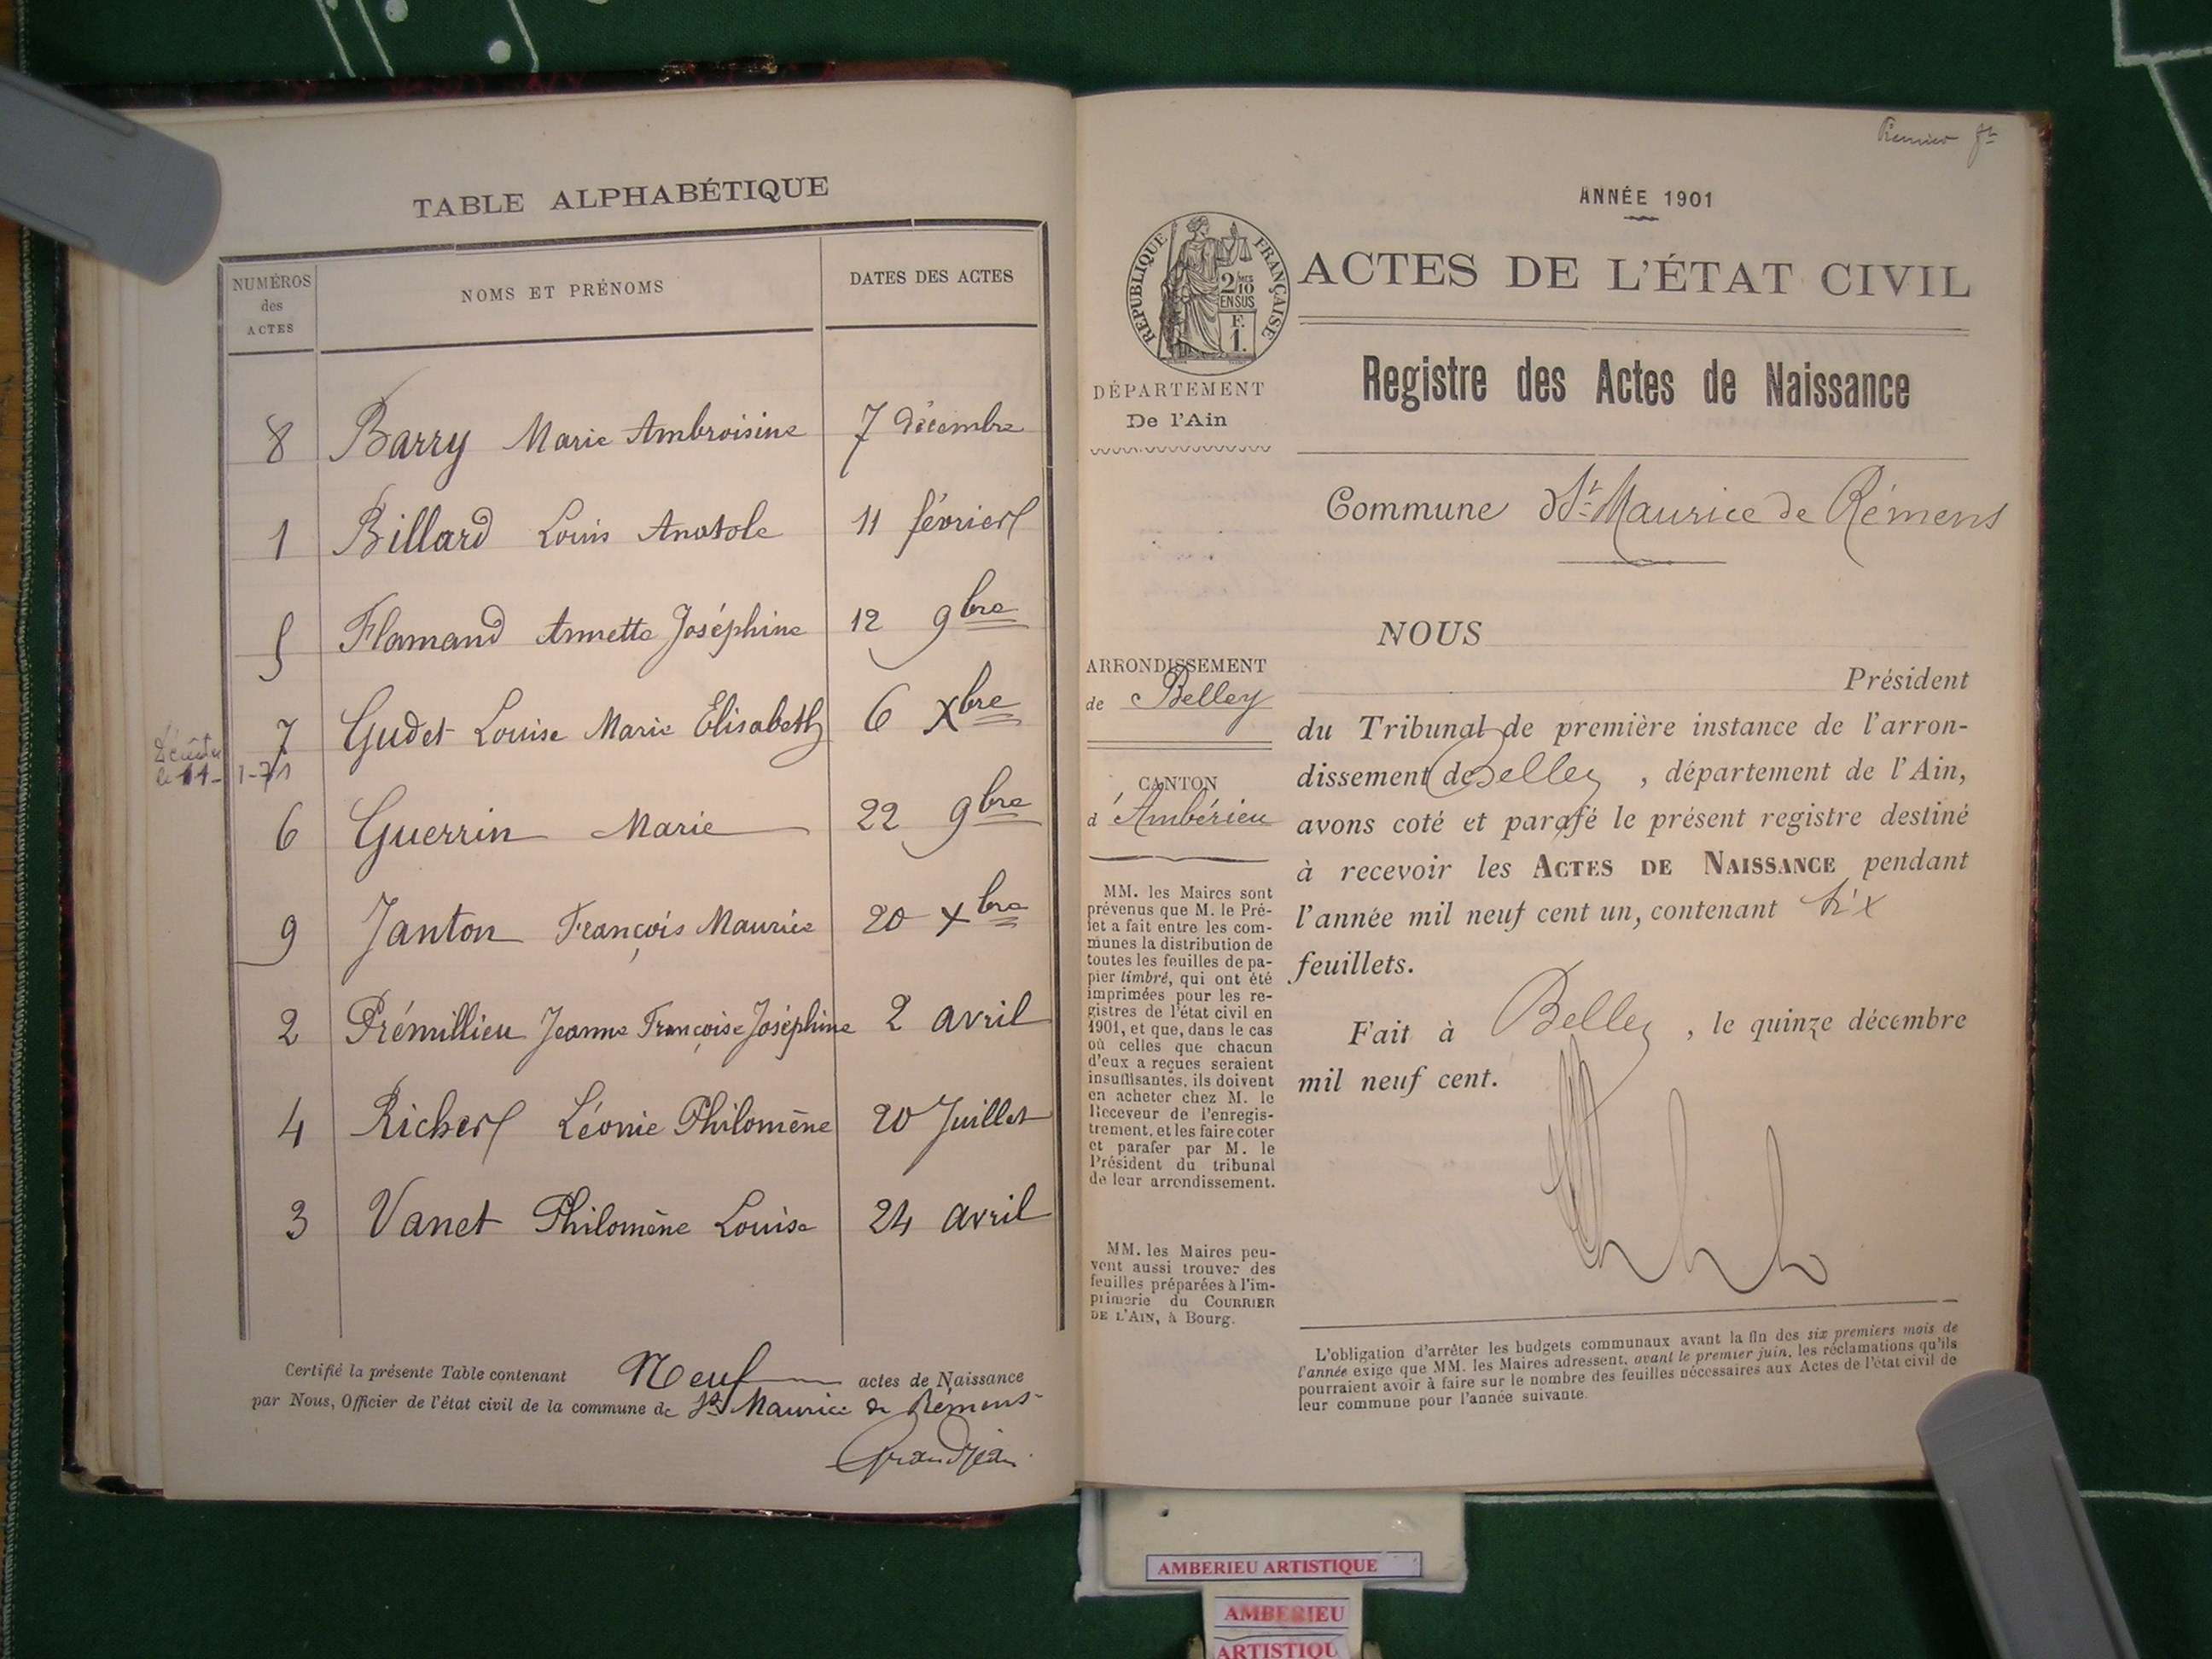 TABLE ALPHABÉTIQUE
NUMÉROS des ACTES
NOMS ET PRÉNOMS
DATES DES ACTES
8 Barry Marie Ambroisine 7 décembre
1 Billard Louis Anatole 11 février
5 Flamand Annette Joséphine 12 9bre
7 Gudet Louise Marie Elisabeth 6 Xbre
le 11-1-71
6 Guerrin Marie 22 9bre
9 Janton François Maurice 20 Xbre
2 Prémillieu Jeanne Françoise Joséphine 2 avril
4 Richerl Léonie Philomène 20 Juillet
3 Vanet Philomène Louise 24 avril
Certifié la présente Table contenant Neuf actes de Naissance
par Nous, Officier de l'état civil de la commune de St Maurice de Rémens
Grandjean
Premier
ANNÉE 1901
RÉPUBLIQUE FRANÇAISE
2/10
EN SUS
F.
1.
ACTES DE L'ÉTAT CIVIL
Registre des Actes de Naissance
DÉPARTEMENT
De l'Ain
Commune de St Maurice de Rémens
ARRONDISSEMENT
de Belley
CANTON
d'Ambérieu
MM. les Maires sont
prévenus que M. le Pré-
fet a fait entre les com-
munes la distribution de
toutes les feuilles de pa-
pier timbré, qui ont été
imprimées pour les re-
gistres de l'état civil en
1901, et que, dans le cas
où celles que chacun
d'eux a reçues seraient
insuffisantes, ils doivent
en acheter chez M. le
Receveur de l'enregis-
trement, et les faire coter
et parafer par M. le
Président du tribunal
de leur arrondissement.
MM. les Maires peu-
vent aussi trouver des
feuilles préparées à l'im-
primerie du COURRIER
DE L'AIN, à Bourg.
NOUS
Président
du Tribunal de première instance de l'arron-
dissement de Belley , département de l'Ain,
avons coté et parafé le présent registre destiné
à recevoir les ACTES DE NAISSANCE pendant
l'année mil neuf cent un, contenant
feuillets.
Fait à Belley , le quinze décembre
mil neuf cent.
L'obligation d'arrêter les budgets communaux avant la fin des six premiers mois de
l'année exige que MM. les Maires adressent, avant le premier juin, les réclamations qu'ils
pourraient avoir à faire sur le nombre des feuilles nécessaires aux Actes de l'état civil de
leur commune pour l'année suivante.
AMBERIEU ARTISTIQUE
AMBERIEU
ARTISTIQU